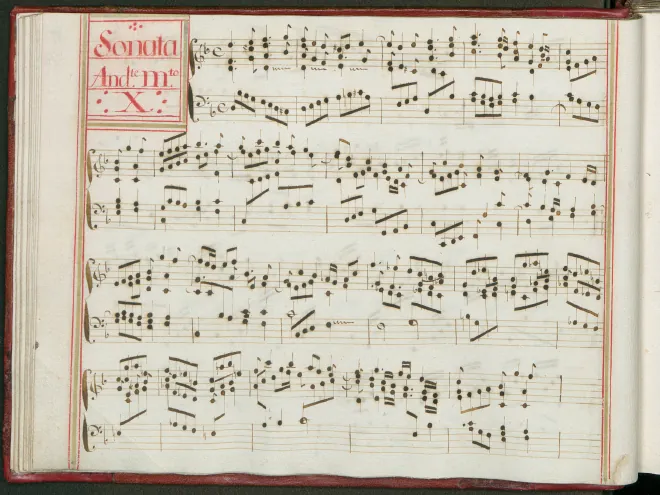 Sonata
And.te m.to
X